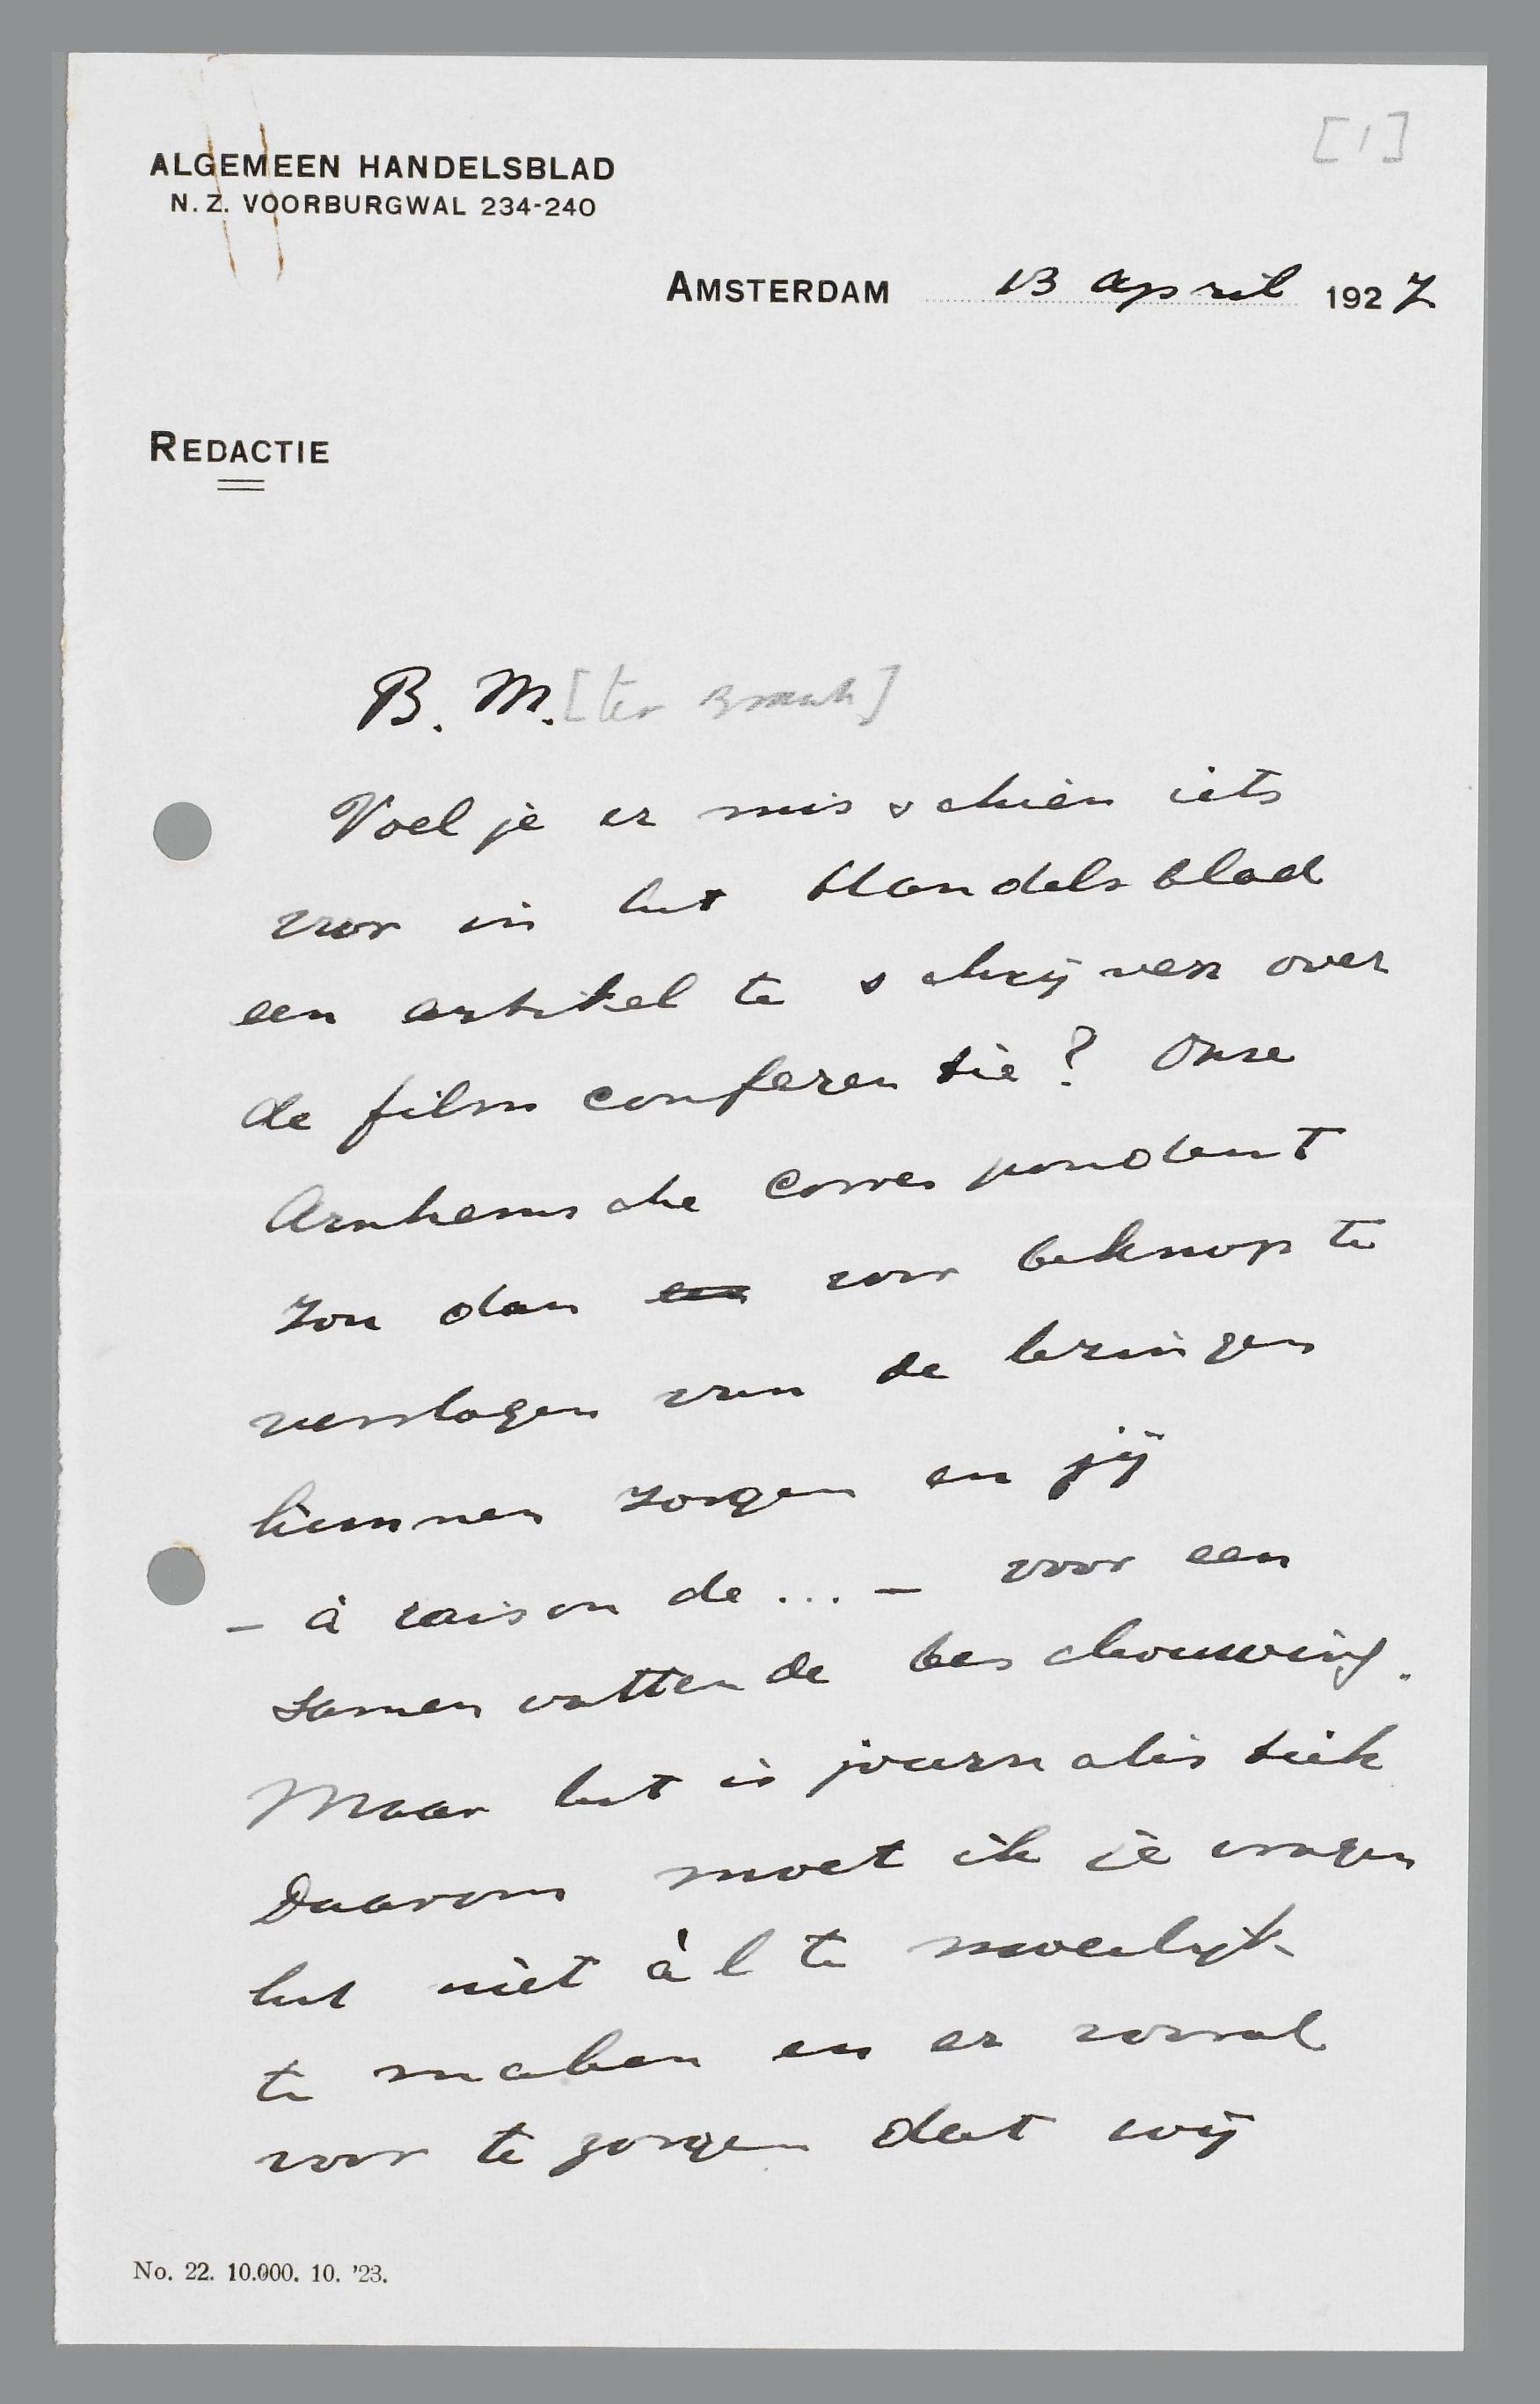 [1]
ALGEMEEN HANDELSBLAD
N. Z. VOORBURGWAL 234-240
AMSTERDAM 13 april 1927
REDACTIE
B. M. [ter Braak]
Voel je er misschien iets
voor in het Handelsblad
een artikel te schrijven over
de film conferentie? Onze
Arnhemsche correspondent
zou dan een voor beknopte
verslagen van de lezingen
kunnen zorgen en jij
– à raison de ... – voor een
samenvattende beschouwing.
Maar het is journalistiek
Daarom moet ik je vragen
het niet àl te moeilijk
te maken en er vooral
voor te zorgen dat wij
No. 22. 10.000. 10. '23.